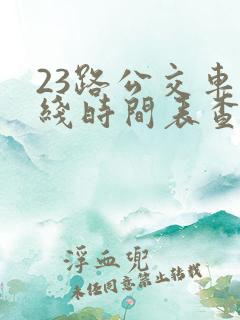 23路公交車
綫時間表查
浮血兜
未任同意禁止转载